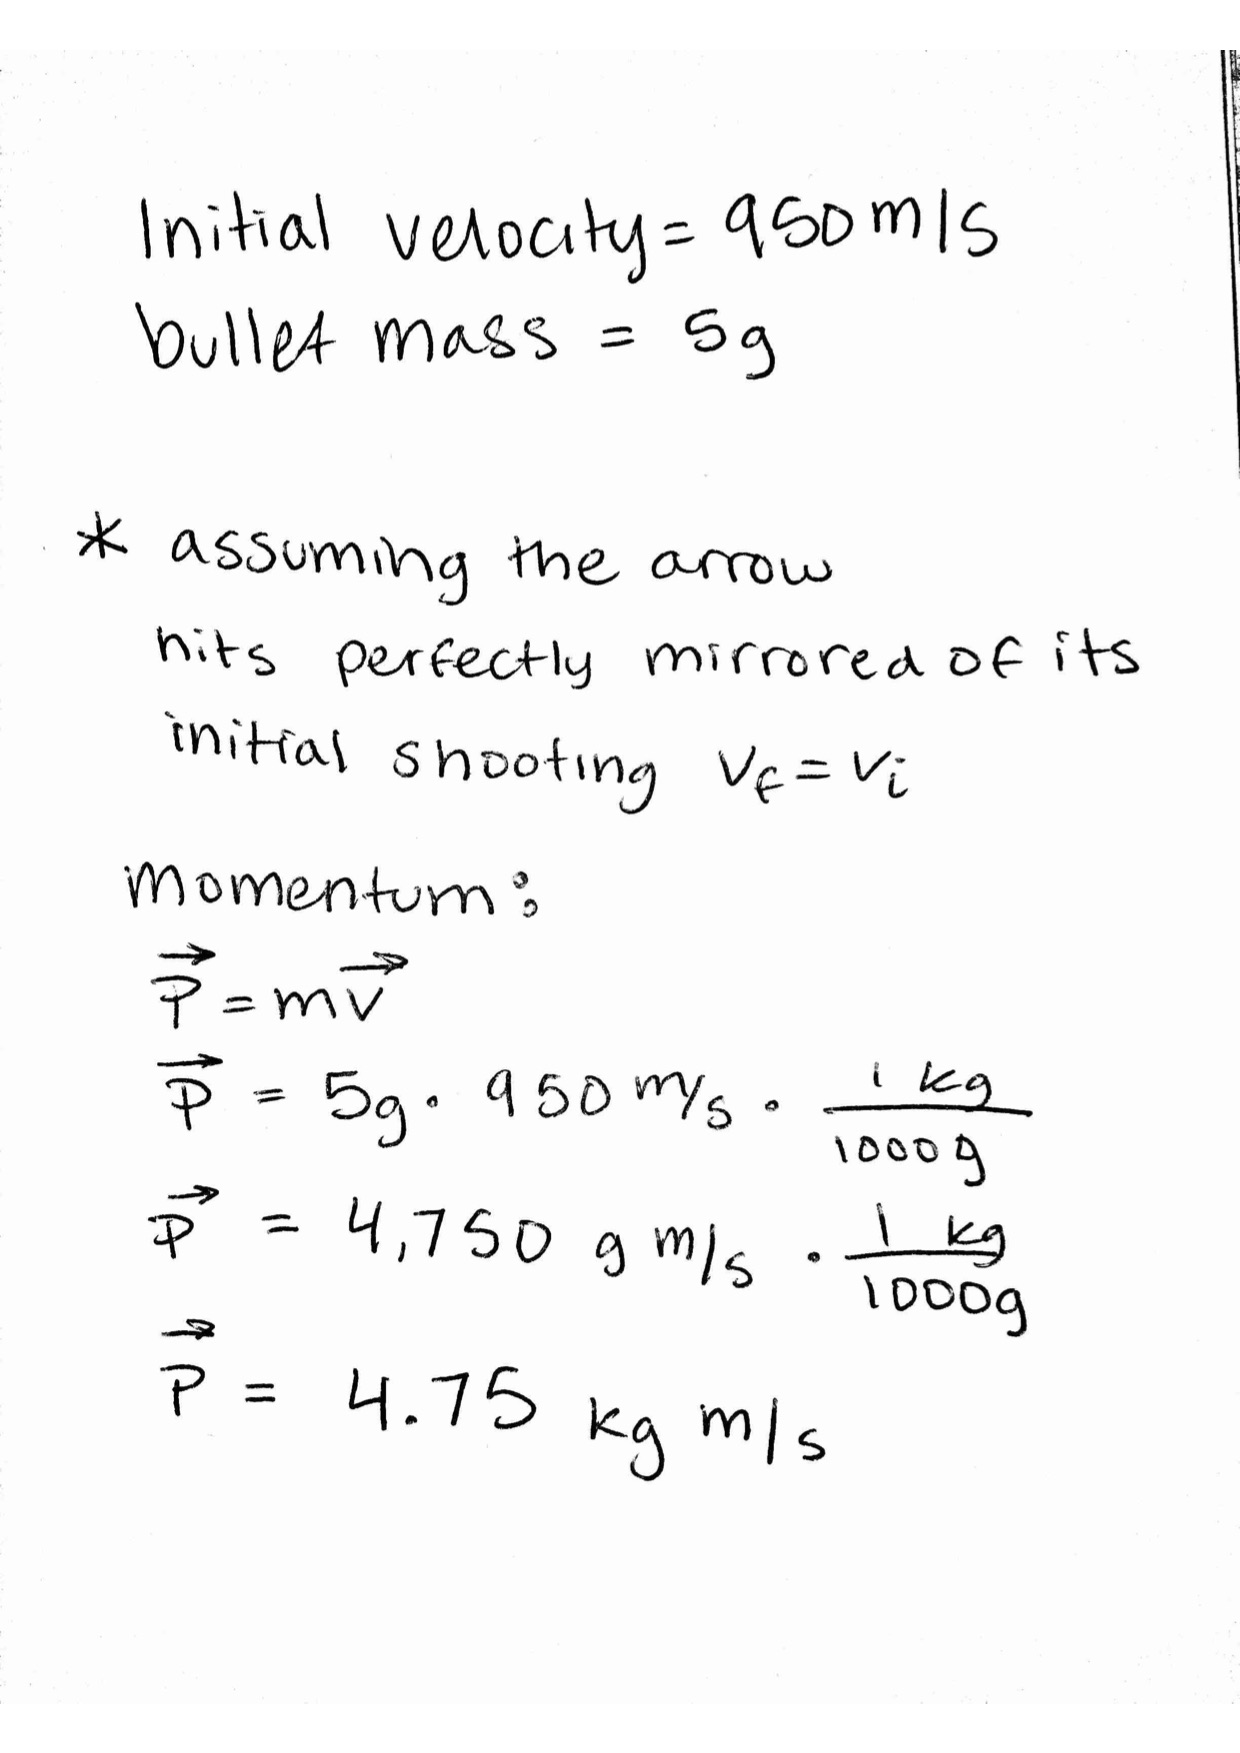 Initial velocity = 950 m/s
bullet mass = 5g
* assuming the arrow
hits perfectly mirrored of its
initial shooting Vf = Vi
Momentum:
P⃗ = mv⃗
P⃗ = 5g · 950 m/s · 1 kg / 1000 g
P⃗ = 4,750 g m/s · 1 kg / 1000g
P⃗ = 4.75 kg m/s